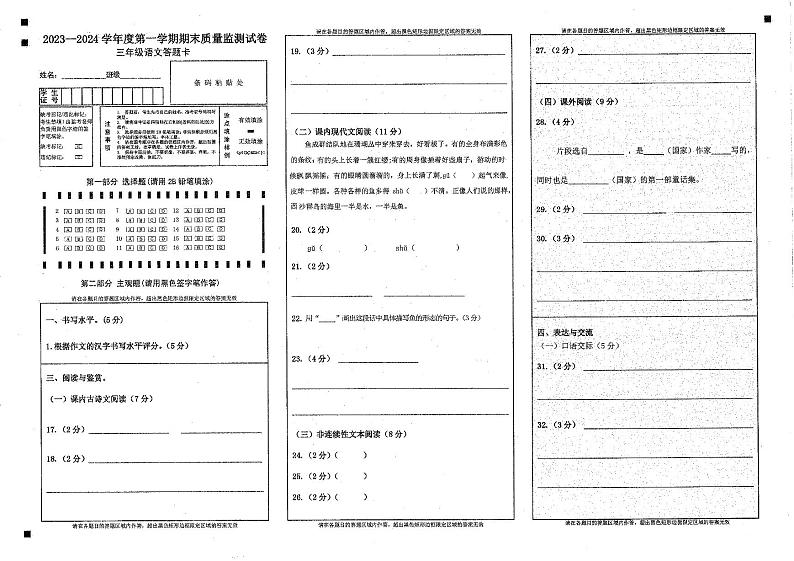 2023--2024 学年度第一学期期末质量监测试卷
三年级语文答题卡
姓名: 班级
条码粘贴处
学生证号
缺考标记
违纪标记
注意事项
填涂样例
有效填涂
无效填涂
第一部分 选择题(请用 2B 铅笔填涂)
2 A B C D 7 A B C D 12 A B C D
3 A B C D 8 A B C D 13 A B C D
4 A B C D 9 A B C D 14 A B C D
5 A B C D 10 A B C D 15 A B C D
6 A B C D 11 A B C D 16 A B C D
第二部分 主观题(请用黑色签字笔作答)
请在各题目的答题区域内作答，超出黑色矩形边框限定区域的答案无效
一、书写水平。(5 分)
1.根据作文的汉字书写水平评分。(5 分)
三、阅读与鉴赏。
(一) 课内古诗文阅读 (7 分)
17. (2 分)
18. (2 分)
请在各题目的答题区域内作答，超出黑色矩形边框限定区域的答案无效
请在各题目的答题区域内作答，超出黑色矩形边框限定区域的答案无效
19. (3 分)
(二) 课内现代文阅读 (11 分)
鱼成群结队地在珊瑚丛中穿来穿去，好看极了。有的全身布满彩色
的条纹；有的头上长着一簇红缨；有的周身像插着好些扇子，游动的时
候飘飘摇摇；有的眼睛圆溜溜的，身上长满了刺,gǔ ( ) 起气来像
皮球一样圆。各种各样的鱼多得 shǔ ( ) 不清。正像人们说的那样，
西沙群岛的海里一半是水，一半是鱼。
20. (2 分)
gǔ ( ) shǔ ( )
21. (2 分)
22. 用“____”画出这段话中具体描写鱼的形态的句子。(3 分)
23. (4 分)
(三) 非连续性文本阅读 (8 分)
24. (2 分) ( )
25. (2 分) ( )
26. (2 分) ( )
请在各题目的答题区域内作答，超出黑色矩形边框限定区域的答案无效
请在各题目的答题区域内作答，超出黑色矩形边框限定区域的答案无效
27. (2 分)
(四) 课外阅读 (9 分)
28. (4 分)
片段选自________，是____ (国家) 作家____写的，
同时也是________ (国家) 的第一部童话集。
29. (2 分)
30. (3 分)
四、表达与交流
(一) 口语交际 (5 分)
31. (2 分)
32. (3 分)
请在各题目的答题区域内作答，超出黑色矩形边框限定区域的答案无效